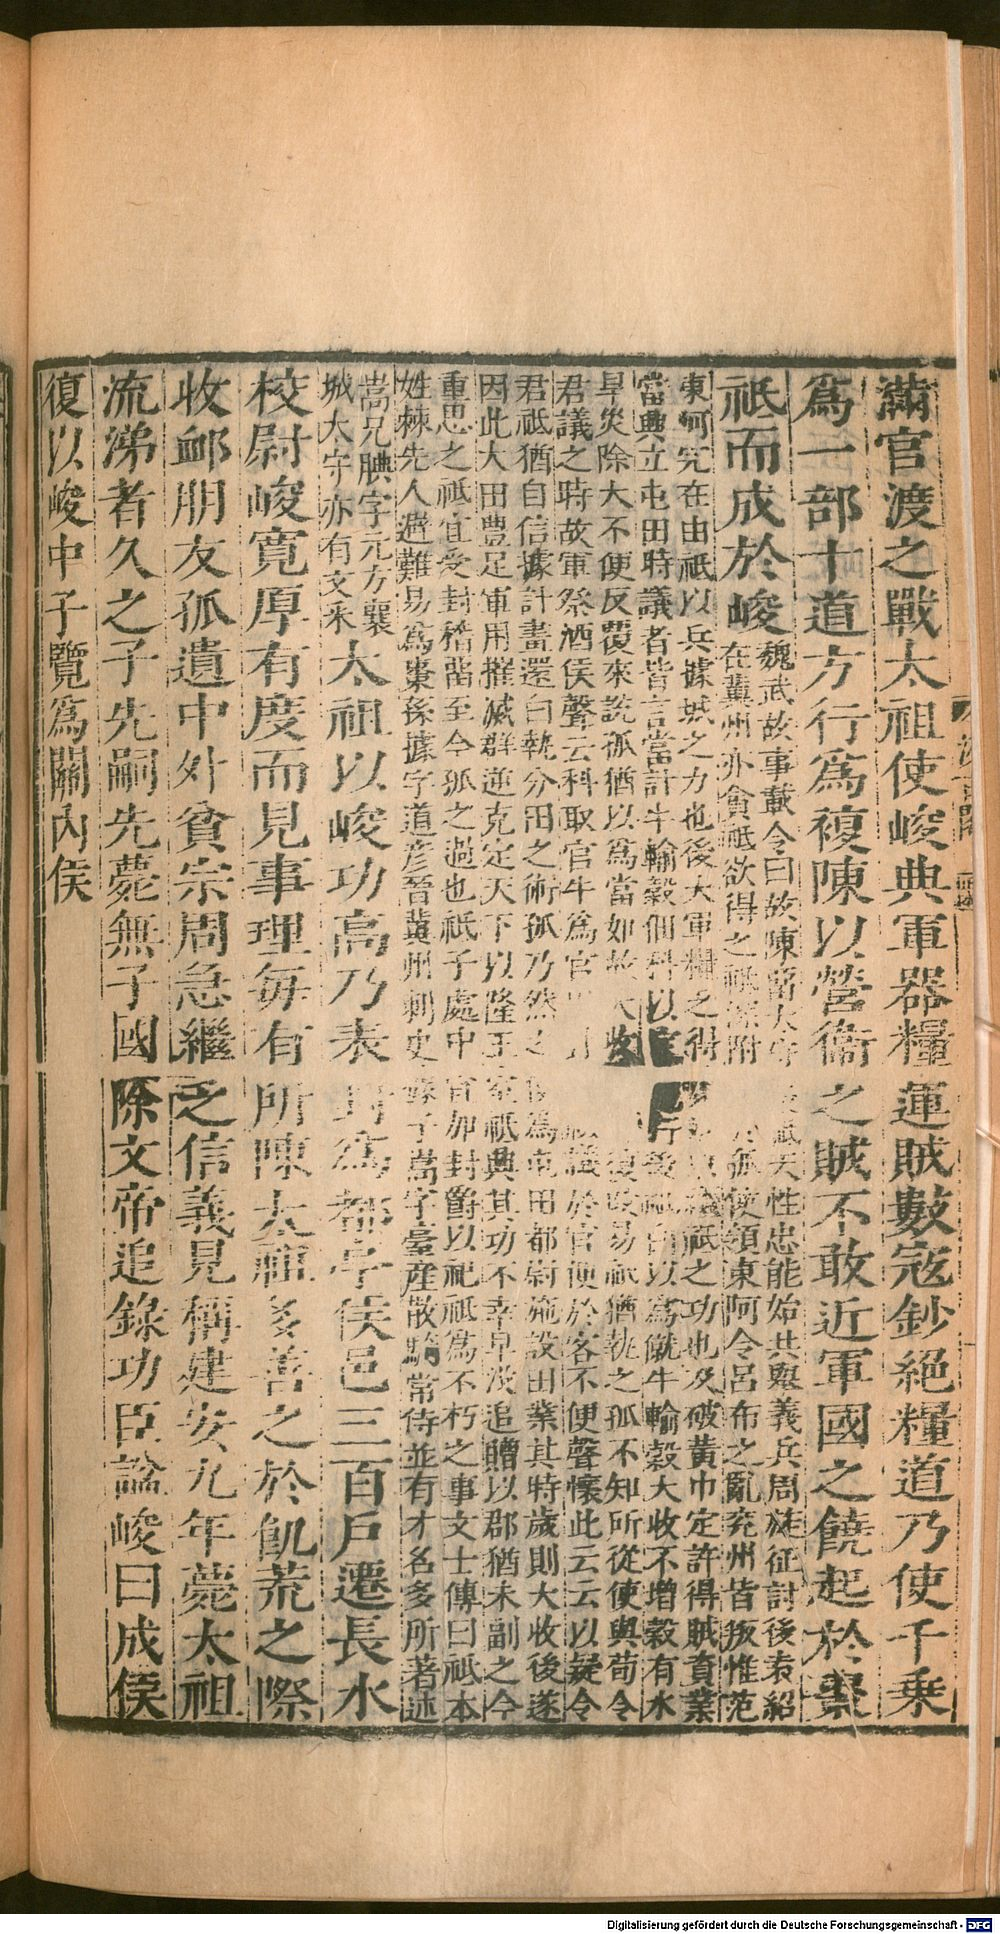 滿官渡之戰太祖使峻典軍器糧運賊數寇鈔絕糧道乃使千乘
爲一部十道方行爲複陳以營衞之賊不敢近軍國之饒起於棗
祗而成於峻
魏武故事載令曰故陳留太守祗天性忠能始共舉義兵周旋征討後袁紹
在冀州亦貪祗欲得之祗深附於孤使領東阿令呂布之亂兖州皆叛惟范
東阿完在由祗以兵據城之力也後大軍糧乏得祗之功也及破黃巾定許得賊資業
當興立屯田時議者皆言當計牛輸穀佃科以行後祗白以爲僦牛輸穀大收不增穀有水
旱災除大不便反覆來說孤猶以爲當如故大收復改易祗猶執之孤不知所從使與荀令
君議之時故軍祭酒侯聲云科取官牛爲官議於官便於客不便聲懷此云云以疑令
君祗猶自信據計畫還白執分田之術孤乃然之爲屯田都尉施設田業其特歲則大收後遂
因此大田豊足軍用摧滅群逆克定天下以隆王室祗典其功不幸早沒追贈以郡猶未副之今
重思之祗宜受封稽留至今孤之過也祗子處中宜加封爵以祀祗爲不朽之事文士傳曰祗本
姓棘先人避難易爲棗孫據字道彥晉冀州刺史據子嵩字臺産散騎常侍並有才名多所著述
嵩兄腆字元方襄
城太守亦有文采
太祖以峻功高乃表封爲都亭侯邑三百戶遷長水
校尉峻寬厚有度而見事理每有所陳太祖多善之於飢荒之際
收卹朋友孤遺中外貧宗周急繼乏信義見稱建安九年薨太祖
流涕者久之子先嗣先薨無子國除文帝追錄功臣諡峻曰成侯
復以峻中子覽爲關內侯
Digitalisierung gefördert durch die Deutsche Forschungsgemeinschaft - DFG